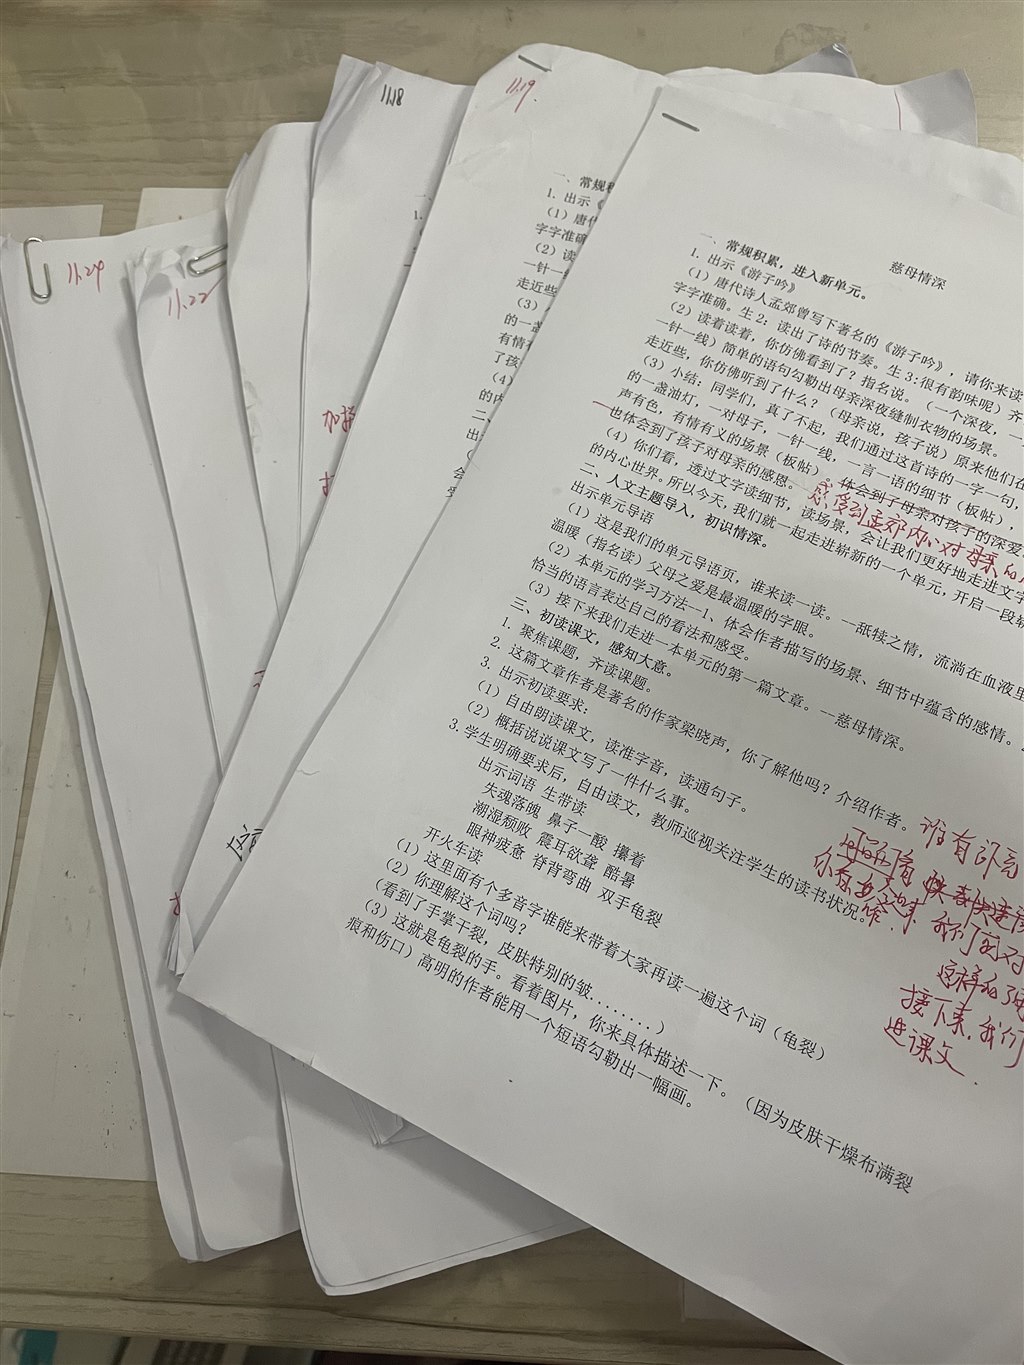 11.24
11.22
11.18
11.19.
一、常规积
1. 出示《
(1)唐代
字字准确
(2)读
一针一线
走近些
(3)
的一盏
有情有
了孩
(4)
的内
二
出
慈母情深
一、常规积累，进入新单元。
1. 出示《游子吟》
(1)唐代诗人孟郊曾写下著名的《游子吟》，请你来读
字字准确。生2：读出了诗的节奏。生3:很有韵味呢）齐
(2)读着读着，你仿佛看到了？指名说。（一个深夜，一
一针一线）简单的语句勾勒出母亲深夜缝制衣物的场景。
走近些，你仿佛听到了什么？（母亲说，孩子说）原来他们在
(3)小结：同学们，真了不起，我们通过这首诗的一字一句，
的一盏油灯，一对母子，一针一线，一言一语的细节（板帖），
声有色，有情有义的场景（板帖）。体会到子母亲对孩子的深爱
也体会到了孩子对母亲的感恩。
感受到孟郊内心对母亲的
(4)你们看，透过文字读细节，读场景，会让我们更好地走进文字
的内心世界。所以今天，我们就一起走进崭新的一个单元，开启一段崭
二、人文主题导入，初识情深。
出示单元导语
(1)这是我们的单元导语页，谁来读一读。一舐犊之情，流淌在血液里
温暖（指名读）父母之爱是最温暖的字眼。
(2)本单元的学习方法一1、体会作者描写的场景、细节中蕴含的感情。
恰当的语言表达自己的看法和感受。
(3)接下来我们走进一本单元的第一篇文章。一慈母情深。
三、初读课文，感知大意。
1. 聚焦课题，齐读课题。
2. 这篇文章作者是著名的作家梁晓声，你了解他吗？介绍作者。
3. 出示初读要求：
(1)自由朗读课文，读准字音，读通句子。
(2)概括说说课文写了一件什么事。
3. 学生明确要求后，自由读文，教师巡视关注学生的读书状况。
出示词语 生带读
失魂落魄 鼻子一酸 攥着
潮湿颓败 震耳欲聋 酷暑
眼神疲惫 脊背弯曲 双手龟裂
开火车读
(1)这里面有个多音字谁能来带着大家再读一遍这个词（龟裂）
(2)你理解这个词吗？
（看到了手掌干裂，皮肤特别的皱........）
(3)这就是龟裂的手。看着图片，你来具体描述一下。（因为皮肤干燥布满裂
痕和伤口）高明的作者能用一个短语勾勒出一幅画。
谁有
我们
这样的
接下来，我们
进课文.